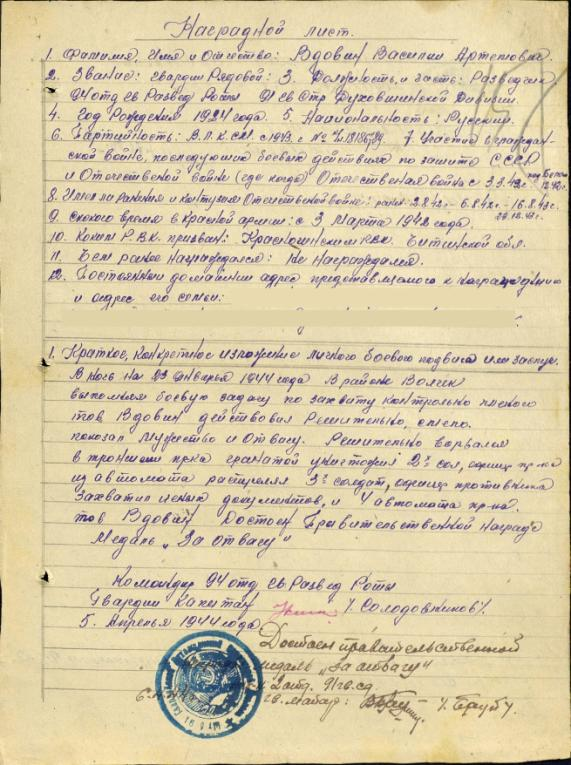 Наградной лист.
1. Фамилия, Имя и Отчество: Вдовин Василий Артемович.
2. Звание: гвардии Рядовой: 3. Должность, и часть: Разведчик
94 отд гв Развед Роты 91 гв Стр Духовщинской Дивизии.
4. Год Рождения 1921 года. 5. Национальность: Русский.
6. Партийность: В.Л.К.С.М. с 1943. с № 7. Участие в граждан-
ской войне, последующих боевых действиях по защите СССР
и Отечественой войне (где когда) Отечественая война с
8. Имел ли ранения и контузии Отечественой войне: ранен
9. Скокого время в Красной армии: с 3 Марта 1942 года.
10. Каким Р.В.К. призван: Читинской обл.
11. Чем ранее Награждался: Не Награждался.
12. Постоянный домашний адрес представляемого к награждению
и адрес его семьи:
1. Краткое, конкретное изложение личного боевого подвига или заслуг.
В ночь на 23 Января 1944 года В районе Волчек
выполняя боевую задачу по захвату контрольно пленого
тов Вдовин действовал Решительно, смело.
показал Мужество и Отвагу. Решительно ворвался
в траншеи пр-ка гранатой уничтожил 2х сол,
из автомата растрелял 3х солдат, противника
Захватил документов, и 4 автомата пр-ка.
тов Вдовин Достоен Правительственной награде
Медаль „За отвагу"
Командир 94 отд гв Развед Роты
Гвардии Капитан /. Солодовников/.
5. Апреля 1944 года
Достоен правительственной
медаль „За отвагу"
91 гв. сд.
гв. майор: